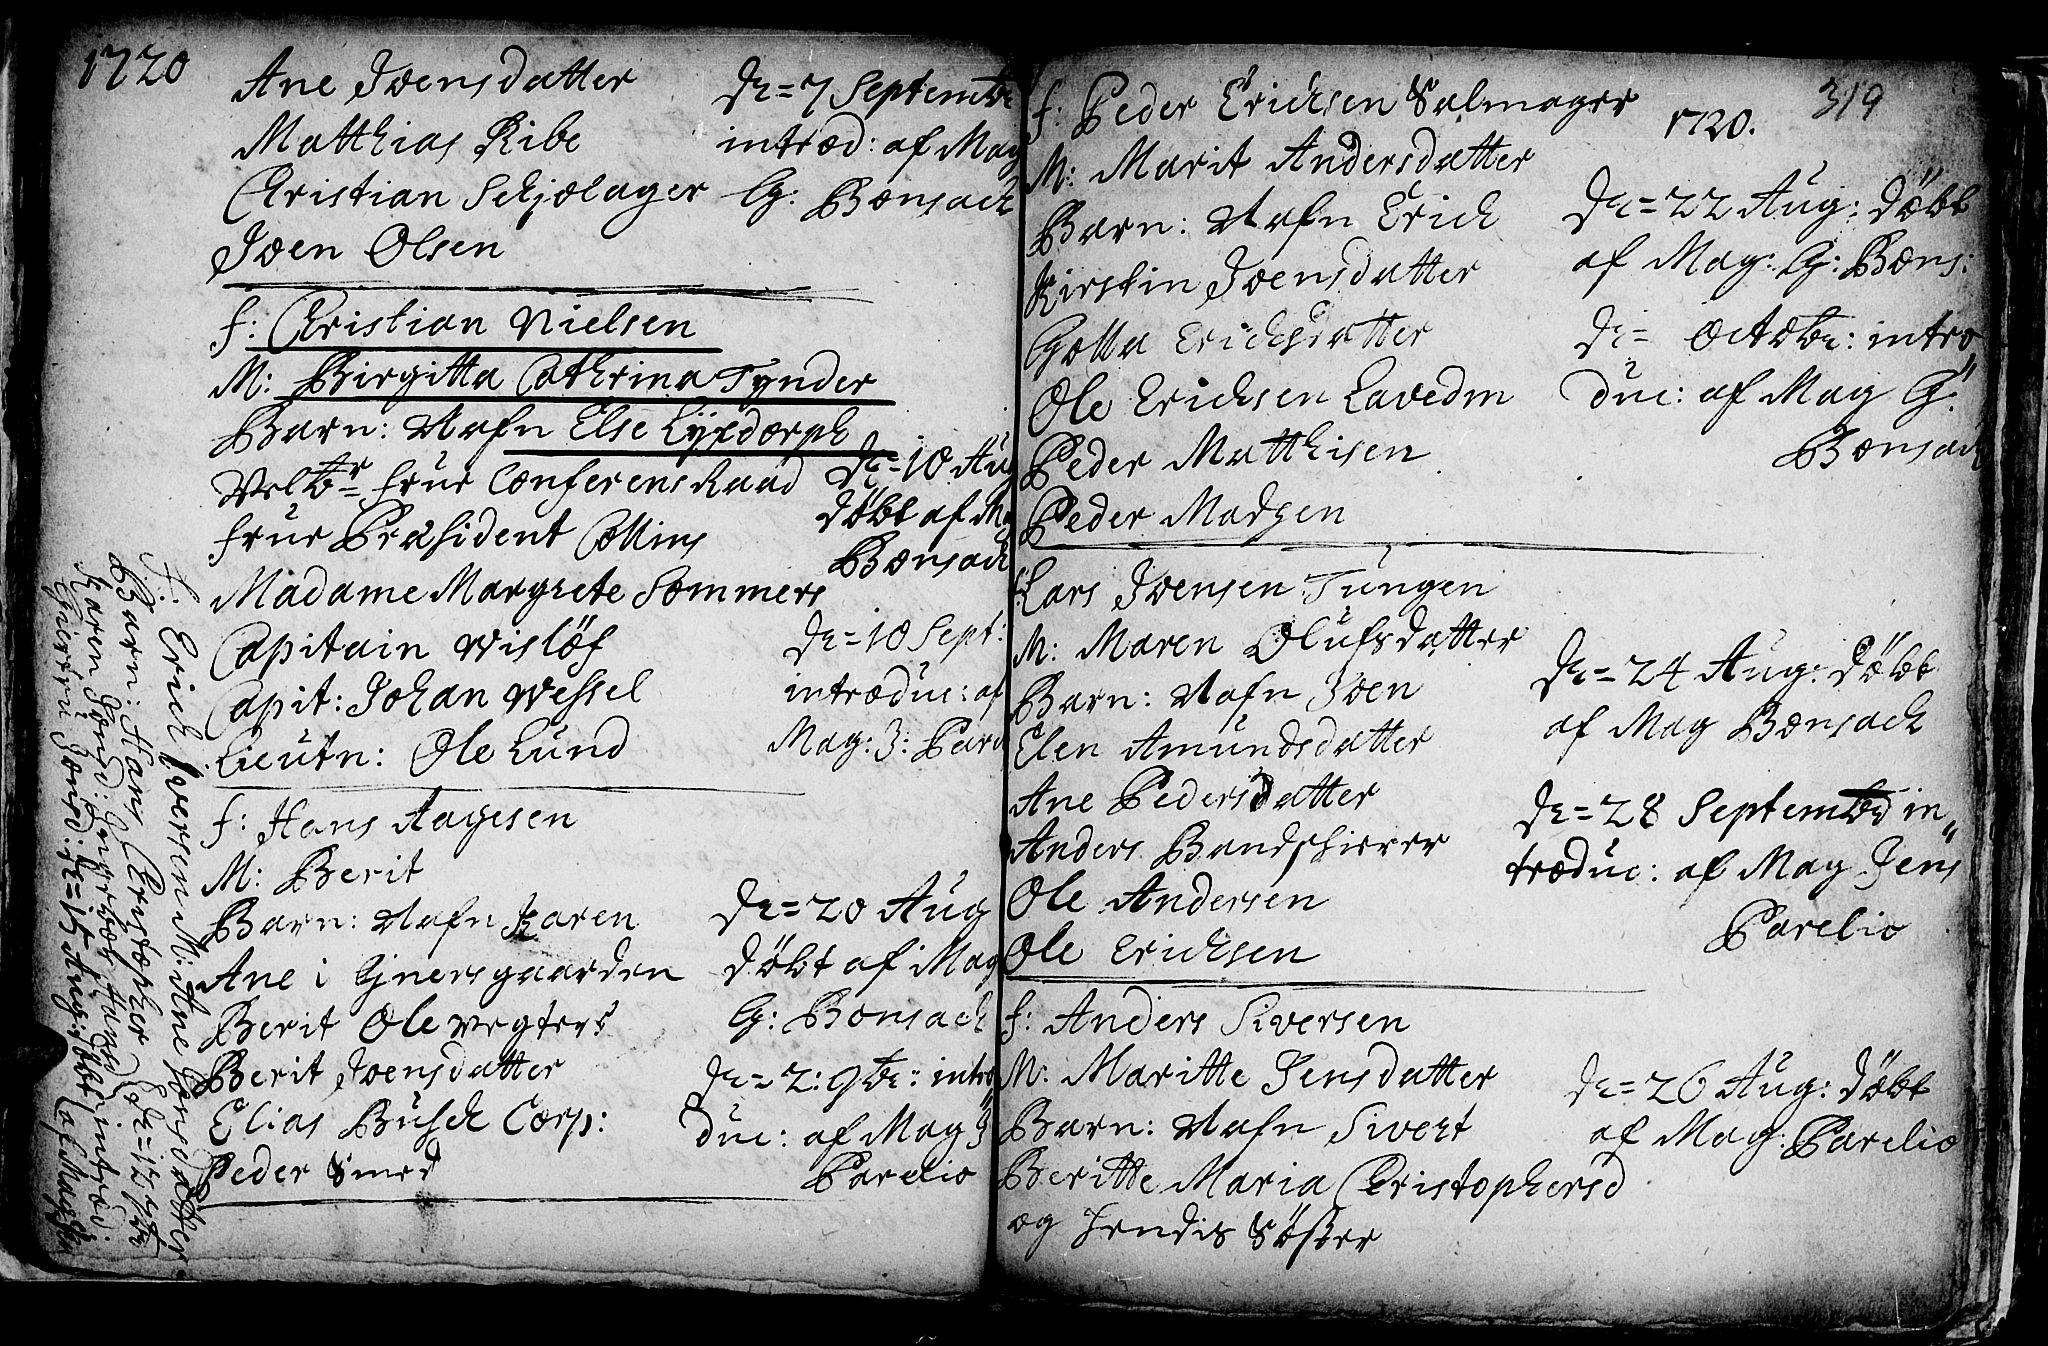 1720
Ane Joensdatter
Matthias Ribe
Christian Schjelager
Joen Olsen
De = 7 Septembr
introd: af Mag
G: Bonsach
f: Christian Nielsen
M: Birgitta Cathrina Tynder
Barn: Nafn Else Lyxdorph
Velbr frue Conferens Raad
frue Præsident Collins
Madame Margrete Sommers
Capitain Wislöf
Capit: Johan Wessel
Lieutn: Ole Lund
De = 10 Aug
döbt af M
Bonsach
De = 10 Sept:
introduc: af
Mag: J: Pare
f: Hans Aagesen
M: Berit
Barn: Nafn Karen
Ane i Ejnersgaarden
Berit Ole Vegters
Berit Joensdatter
Elias Busch Corp:
Peder Smed
De = 20 Aug
döbt af Mag
G: Bonsach
De = 2: 9br: intro
duc: af Mag J
Parelio
f: Erich Iversen M: Ane
Barn: Hans Christopher
Karen Joensd: Ingebor Hansd
Joensd: De = 15 Aug: döbt, introd:
af Mag
319
1720.
f: Peder Erichsen Salmager
M: Marit Andersdatter
Barn: Nafn Erich
Kirstin Joensdatter
Gotta Erichsdatter
Ole Erichsen Lavedm
Peder Matthisen
Peder Madsen
De = 22 Aug: döbt
af Mag: G: Bons:
De = Octobr: intro
duc: af Mag G:
Bonsach
Lars Joensen Tungen
M: Maren Olufsdatter
Barn: Nafn Joen
Elen Amundsdatter
Ane Pedersdatter
Anders Bandschierer
Ole Andersen
Ole Erichsen
De = 24 Aug: döbt
af Mag Bonsach
De = 28 Septembr in
troduc: af Mag Jens
Parelio
f: Anders Siversen
M: Maritte Jensdatter
Barn: Nafn Sivert
Beritte Maria Christophersd
og Jendis Söster
De = 26 Aug: döbt
af Mag: Parelio